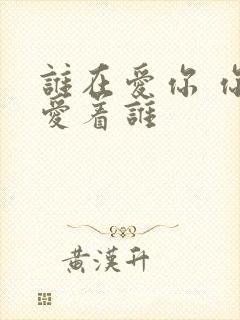 誰在愛你
愛着誰
黃漢升